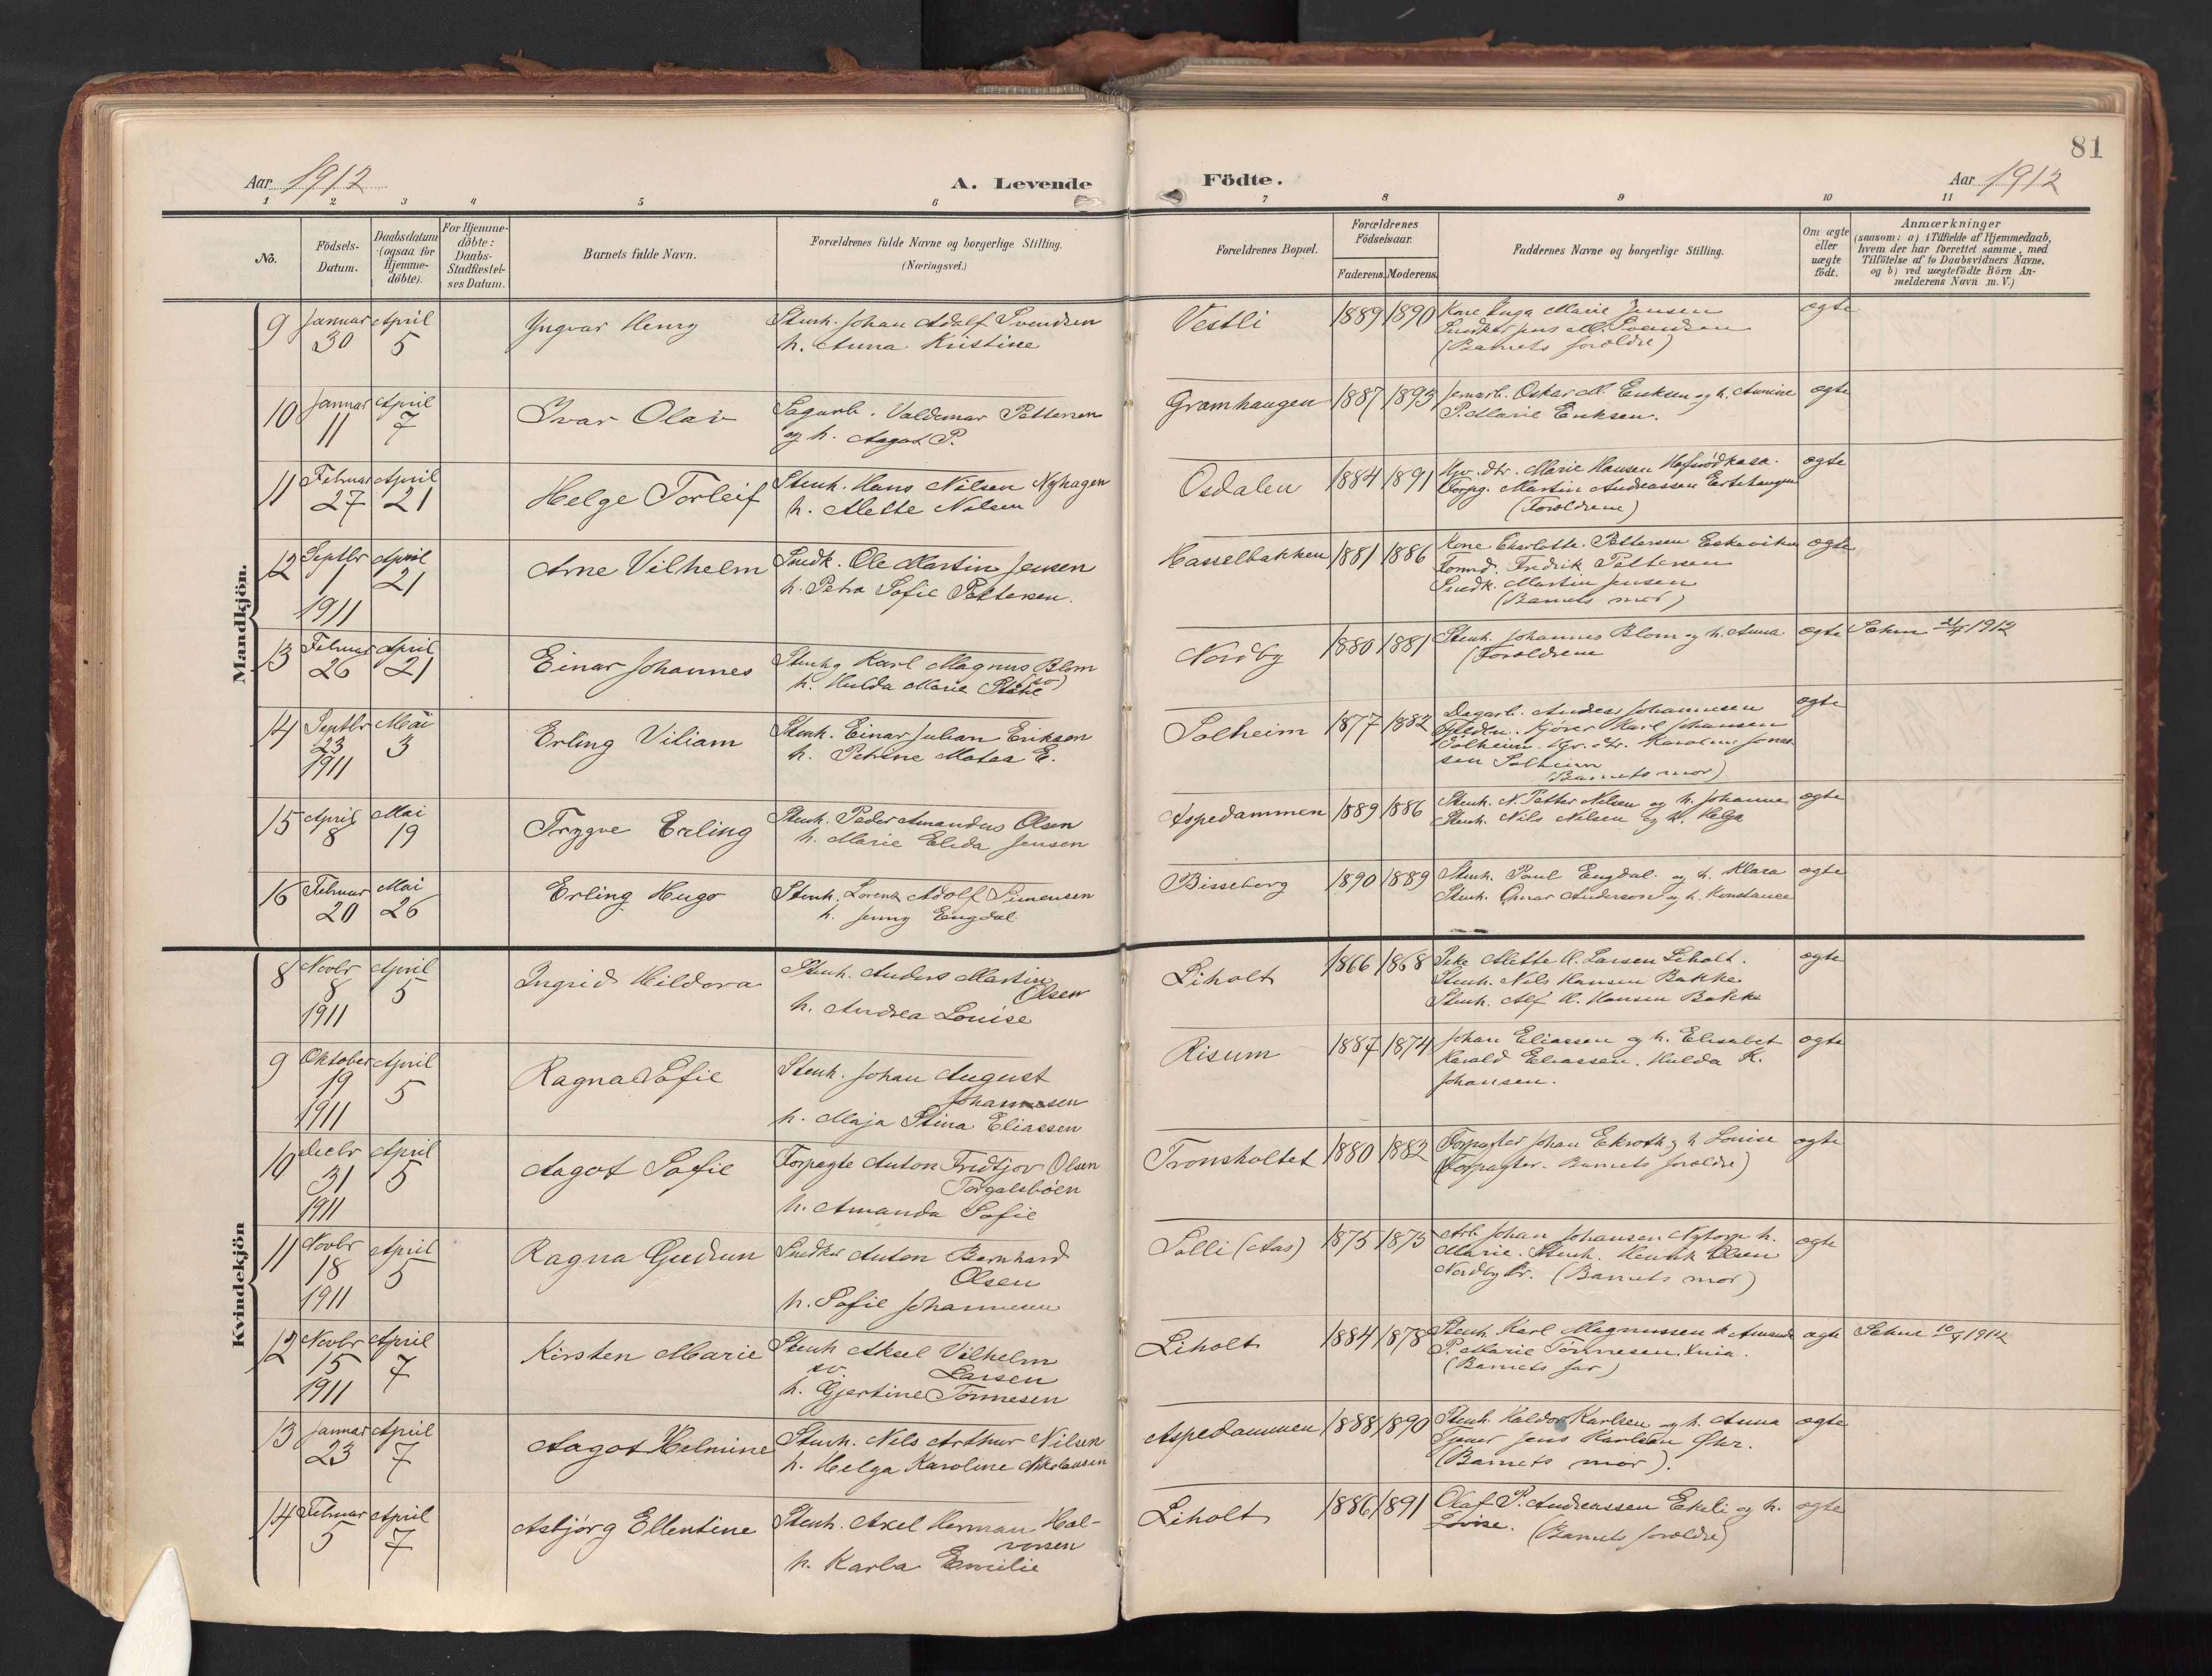 81
Aar 1912
A. Levende Födte.
Aar 1912
1 2 3 4 5 6 7 8 9 10 11
No.
Födsels-
Datum.
Daabsdatum
(ogsaa for
Hjemme-
döbte).
For Hjemme-
döbte:
Daabs-
Stadfæstel-
ses Datum.
Barnets fulde Navn.
Forældrenes fulde Navne og borgerlige Stilling.
(Næringsvei.)
Forældrenes Bopæl.
Forældrenes
Födselsaar.
Faderens. Moderens.
Faddernes Navne og borgerlige Stilling.
Om ægte
eller
uægte
födt.
Anmærkninger
(saasom: a) i Tilfælde af Hjemmedaab,
hvem der har forrettet samme, med
Tilföielse af to Daabsvidners Navne.
og b) ved uægtefödte Börn An-
melderens Navn m. V.)
Mandkjön.
9 Januar 30 April 5
Yngvar Henry
Stenh. Johan Adolf Svendsen
h. Anna Kristine
Vestli 1889 1890
Kone Inga Marie Jensen
Snedker Jens M. Svendsen
(Barnets foreldre)
ægte
10 Januar 11 April 7
Ivar Olav
Sagarb. Valdemar Pettersen
og h. Aagot P.
Gramhaugen 1887 1893
Jernarb. Oskar M. Eriksen og h. Amine
P. Marie Eriksen.
ægte
11 Februar 27 April 21
Helge Torleif
Stenh. Hans Nilsen Nyhagen
h. Alette Nilsen
Osdalen 1884 1891
Gpr. dtr. Marie Hansen
Forpg. Martin Andreassen
(Foreldrene)
ægte
12 Septbr 1 1911 April 21
Arne Vilhelm
Snedk. Ole Martin Jensen
h. Petra Sofie Pettersen.
Hasselbakken 1881 1886
Kone Charlotte Pettersen
Formd. Fredrik Pettersen
Snedk. Martin Jensen
(Barnets mor)
ægte
13 Februar 26 April 21
Einar Johannes
Stenhg Karl Magnus Blom
h. Hulda Marie (sv)
Nordby 1880 1881
Stenh. Johannes Blom og h. Anna
(Foreldrene
ægte
1912
14 Septbr 23 1911 Mai 3
Erling Viliam
Stenh. Einar Julian Eriksen
h. Petrine Matea E.
Solheim 1877 1882
Dagarb. Andreas Johannesen
Kjører Karl Johansen
Solheim. Gr. dtr. Karoline Jonas-
sen Solheim
(Barnets mor)
ægte
15 April 8 Mai 19
Trygve Erling
Stenh. Peder Amandus Olsen
h. Marie Elida Jensen
Aspedammen 1889 1886
Stenh. N. Petter Nilsen og h. Johanne
Stenh. Nils Nilsen og h. Helga
ægte
16 Februar 20 Mai 26
Erling Hugo
Stenh. Lorentz Adolf Simensen
h. Jenny Engdal
Bisseberg 1890 1889
Stenh. Paul Engdal og h. Klara
Stenh. Anderson og h. Konstance
ægte
Kvindekjön
8 Novbr 8 1911 April 5
Ingrid Hildora
Stenh. Anders Martin
Olsen
h. Andrea Louise
Liholt 1866 1868
Pike Alette K. Larsen Liholt.
Stenh. Nils Hansen Bakke
Stenh. Alf H. Hansen Bakke
ægte
9 Oktober 19 1911 April 5
Ragna Sofie
Stenh. Johan August
Johannesen
h. Maja Stina Eliassen
Risum 1887 1874
Johan Eliassen og h. Elisabet
Harald Eliassen. Hulda K.
Johansen.
ægte
10 Decbr 31 1911 April 5
Aagot Sofie
Forpagte Anton Fridtjov Olsen
Torgalsbøen
h. Amanda Sofie
Tronsholtet 1880 1882
Forpagter Johan Ekroth og h Louise
(Forpagter. Barnets foreldre)
ægte
11 Novbr 18 1911 April 5
Ragna Gudrun
Snedker Anton Bernhard
Olsen
h. Sofie Johannesen
Solli (Aas) 1875 1875
Arb Johan Johansen Nytorp h.
Marie. Stenh. Henrik Olsen
Nordby br. (Barnets mor)
ægte
12 Novbr 15 1911 April 7
Kirsten Marie
Stenh Aksel Vilhelm
sv. Larsen
h. Gjertine Tønnesen
Liholt 1884 1878
Stenh. Karl Magnussen h Amanda
P. Marie Tønnesen.
(Barnets far)
ægte
1912
13 Januar 23 April 7
Aagot Helmine
Stenh. Nils Arthur Nilsen
h. Helga Karoline Nikolausen
Aspedammen 1888 1890
Stenh. Haldor Karlsen og h. Anna
Jens Karlsen
(Barnets mor).
ægte
14 Februar 5 April 7
Asbjørg Ellentine
Stenh. Axel Herman Hal-
vorsen
h. Karla Emilie
Liholt 1886 1891
Olaf P. Andreassen Ekeli og h.
Lovise. (Barnets foreldre)
ægte